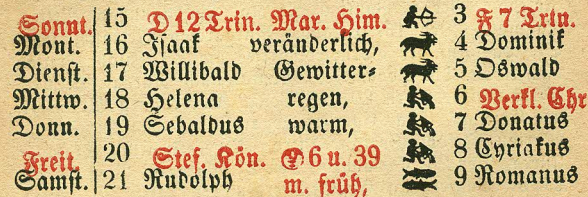 Sonnt. 15 D 12 Trin. Mar. Him. 3 F 7 Trin.
Mont. 16 Isaak veränderlich, 4 Dominik
Dienst. 17 Willibald Gewitter- 5 Oswald
Mittw. 18 Helena regen, 6 Verkl. Chr
Donn. 19 Sebaldus warm, 7 Donatus
Freit. 20 Stef. Kön. 6 u. 39 8 Cyriakus
Samst. 21 Rudolph m. früh, 9 Romanus